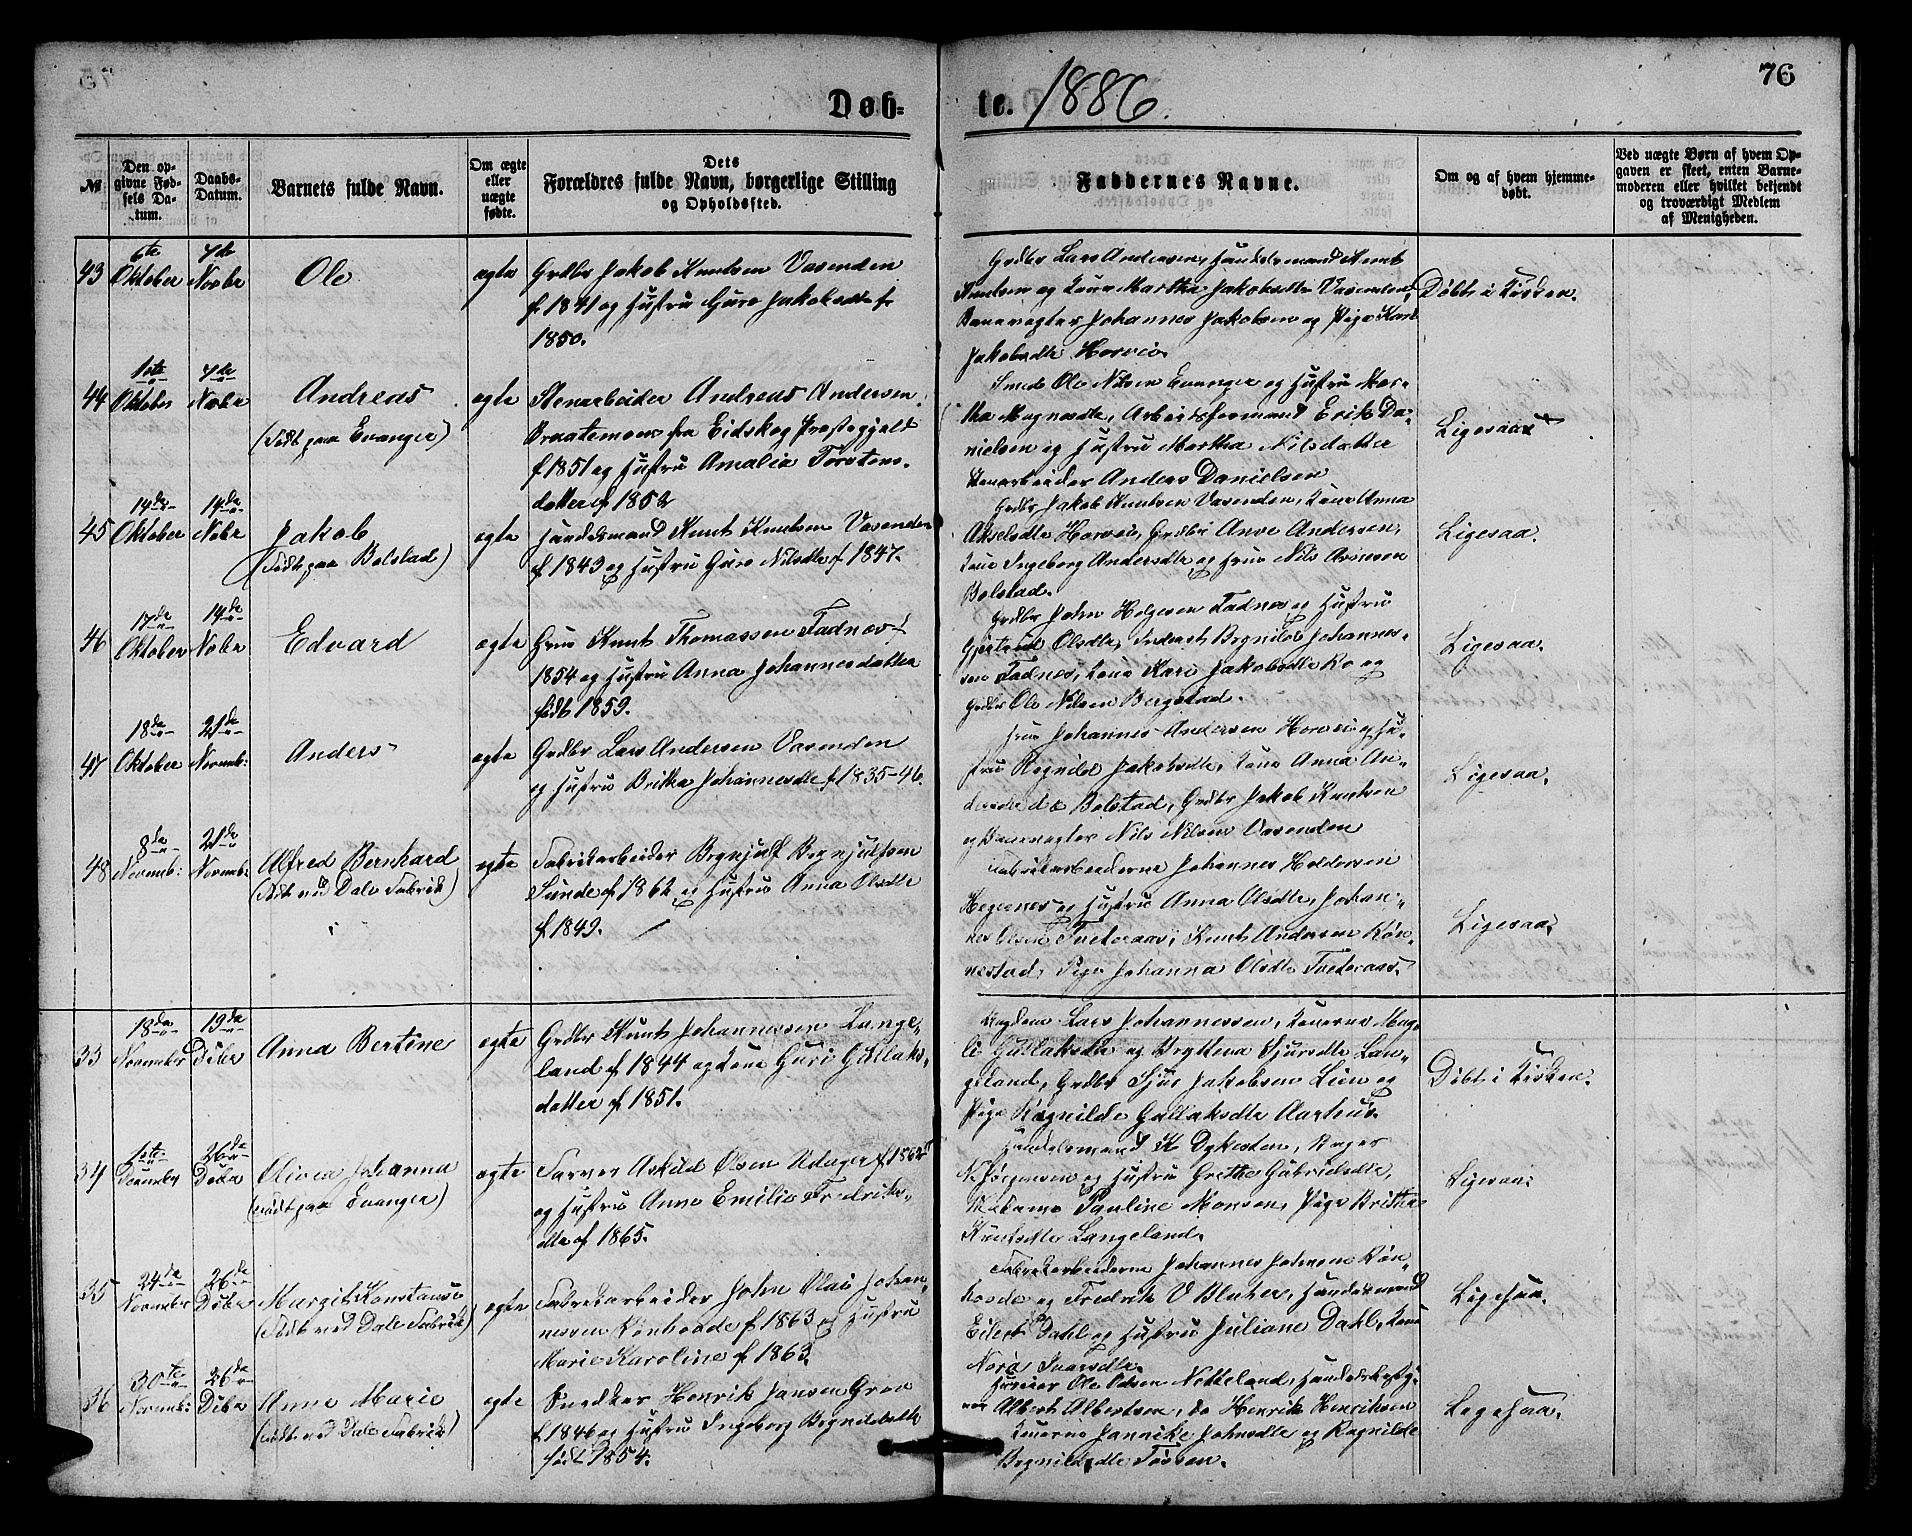 76
Døb=
te. 1886.
№
Den op-
givne Fød-
sels Da-
tum.
Daabs-
Datum.
Barnets fulde Navn.
Om ægte
eller
uægte
fødte.
Dets
Forældres fulde Navn, borgerlige Stilling
og Opholdssted.
Faddernes Navne.
Om og af hvem hjemme-
døbt.
Ved uægte Børn af hvem Op-
gaven er skeet, enten Barne-
moderen eller hvilket bekjendt
og troværdigt Medlem
af Menigheden.
43
6te
Oktober
7de
Novbr
Ole
ægte
Grdbr Jakob Knutsen Vasenden
f 1841 og Hustru Guro Jakobsdtr f
1850.
Grdbr Lars Andersen, Handelsmand Knut
Knutsen og Kone Martha Jakobsdtr Vasenden,
Banevogter Johannes Jakobsen og Pige Kari
Jakobsdtr Horvei.
Döbt i Kirken.
44
1ste
Oktober
7de
Novbr
Andreas
(Födt paa Evanger)
ægte
Stenarbeider Andreas Andersen
fra Eidskog Præstegjeld
f 1851 og Hustru Amalia Torstens-
datter f 1852
Smed Ole Nilsen Evanger og Hustru Mar-
tha Magnesdtr, Arbeidsformand Erik Da-
nielsen og Hustru Martha Nilsdatter
Stenarbeider Anders Danielsen
Ligesaa
45
14de
Oktober
14de
Nobr
Jakob
(Födt paa Bolstad)
ægte
Handelsmand Knut Knutsen Vasenden
f 1843 og Hustru Guro Nilsdtr f 1847.
Grdbr Jakob Knutsen Vasenden, Kone Anna
Akselsdtr Horvei, Grdbr Arve Andersen,
Kone Ingeborg Andersdtr og Nils Arnesen
Bolstad.
Ligesaa.
46
17de
Oktober
14de
Nobr
Edvard
ægte
Knut Thomassen Fadnes f
1854 og Hustru Anna Johannesdatter
födt 1859.
Grdbr John Helgesen Fadnes og Hustru
Gjertrud Olsdtr, Inderst Brynild Johannes-
sen Fadnes, Kone Kari Jakobsdtr Ro og
Grdbr Ole Nilsen Bergstad.
Ligesaa.
47
18de
Oktober
21de
Novemb:
Anders
ægte
Grdbr Lars Andersen Vasenden
og Hustru Britha Johannesdtr f 1835-46.
Johannes Andersen Horvei og Hu-
stru Ragnild Jakobsdtr, Kone Anna An-
dersdtr Bolstad, Grdbr Jakob Knutsen
og Banevogter Nils Nilsen Vasenden
Ligesaa.
48
8de
Novemb:
21de
Novemb:
Alfred Bernhard
(Födt ved Dale Fabrik)
ægte
Fabrikarbeider Brynjulf Brynjulfsen
Sunde f 1862 og Hustru Anna Olsdtr
f 1849.
Fabrikarbeiderne Johannes Haldorsen
og Hustru Anna Olsdtr, Johan-
nes Olsen Tveteraas, Knut Andersen Kön-
nestad, Pige Johanna Olsdtr Tveteraas.
Ligesaa.
33
18de
November
19de
Dsbr
Anna Bertine
ægte
Grdbr Knut Johannessen Lange-
land f 1844 og Kone Guri Gullaks-
datter f 1851.
Ungdom Lars Johannessen, Konerne Mag-
li Gullaksdtr og Brytteva Sjursdtr Lan-
geland, Grdbr Sjur Jakobsen Lien og
Pige Ragnilde Gullaksdtr Aarhus.
Döbt i Kirken.
34
1ste
December
26de
Dsbr
Olivia Johanna
(Födt paa Evanger)
ægte
Farver Askild Olsen f 1862
og Hustru Anne Emilie Fredriks-
dtr f 1865.
Handelsmand K Dykesten, Bager
N Jörgensen og Hustru Grethe Gabrielsdtr,
Madame Pauline Monsen, Pige Britha
Knutsdtr Langeland.
Ligesaa.
35
24de
November
26de
Dsbr
Margit Konstanse
(Födt ved Dale Fabrik)
ægte
Fabrikarbeider John Olai Johan-
nessen Rönhovde f 1863 og Hustru
Marie Karoline f 1863.
Fabrikarbeiderne Johannes Johnsen Rön-
hovde og Fredrik V Bluher, Handelsmand
Eilert Dahl og Hustru Juliane Dahl, Kone
Nora Ivarsdtr.
Ligesaa.
36
30te
Novemb:
26de
Dsbr
Anne Marie
(Födt ved Dale Fabrik)
ægte
Snedker Henrik Jansen Gren
f 1846 og Hustru Ingeborg Brynildsdtr
födt 1854.
Ole Olsen Netteland, Handelsbesty-
rer Albert Albertsen, do Henrik Henriksen
Konerne Jannike Johnsdtr og Ragnilde
Brynildsdtr Fossen.
Ligesaa.